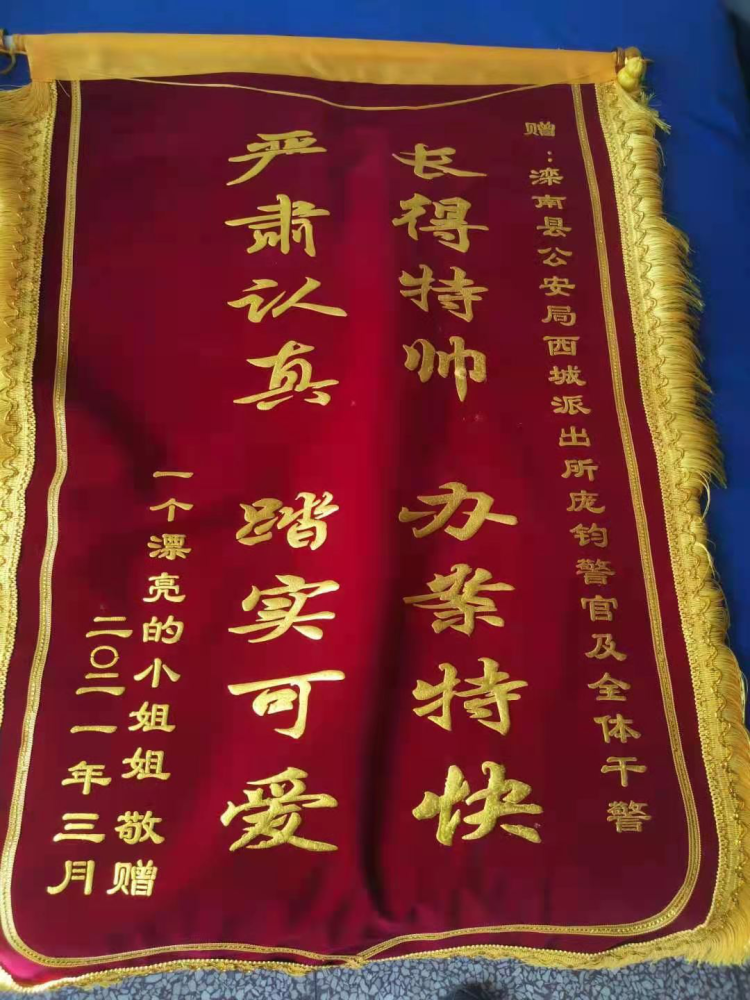 赠：滦南县公安局西城派出所庞钧警官及全体干警
长得特帅 办案特快
严肃认真 踏实可爱
一个漂亮的小姐姐 敬赠
二〇二一年三月